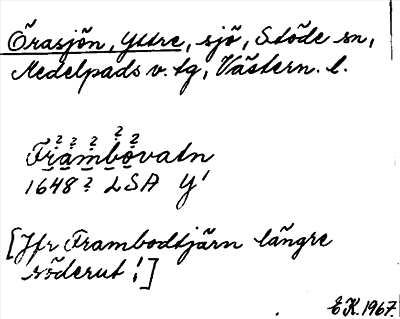 Örasjön, Yttre, sjö, Stöde sn,
Medelpads v. tg, Västern. l.
? ? ? ? ?
Frambovatn
1648? LSA Y'
[Jfr Frambodtjärn längre
söderut!]
EK. 1967.